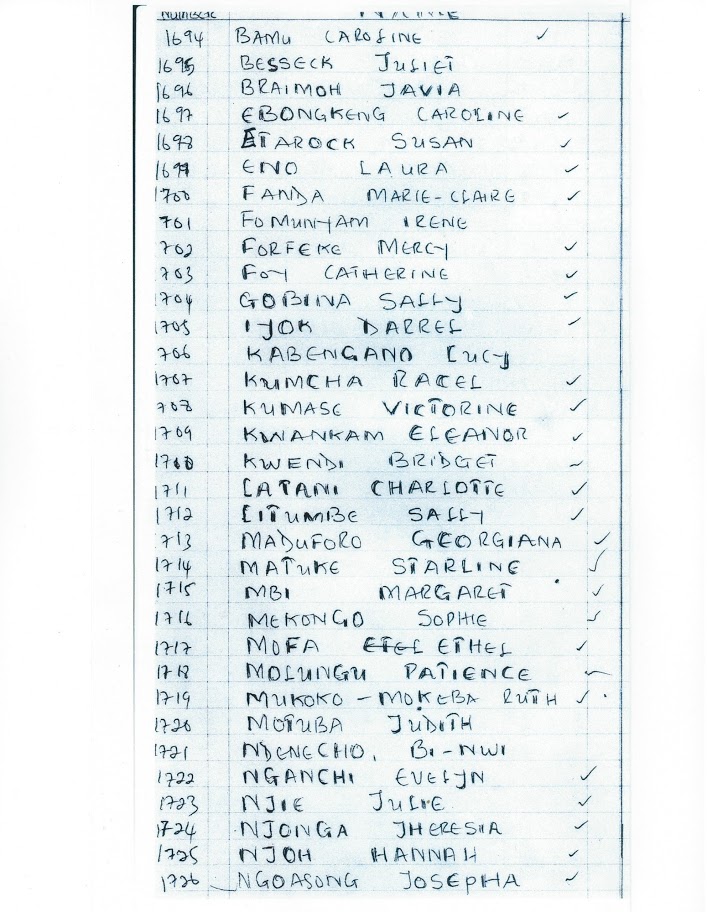 NUMBER NAME
1694 BAMU CAROLINE ✓
1695 BESSECK JULIET
1696 BRAIMOH JAVIA
1697 EBONGKENG CAROLINE ✓
1698 ETAROCK SUSAN ✓
1699 ENO LAURA ✓
1700 FANDA MARIE-CLAIRE ✓
701 FOMUNYAM IRENE
702 FORFEKE MERCY ✓
703 FOY CATHERINE ✓
704 GOBINA SALLY ✓
1705 IJOK DARREL ✓
706 KABENGANO LUCY
1707 KUMCHA RACEL ✓
708 KUMASE VICTORINE ✓
1709 KWANKAM ELEANOR ✓
1710 KWENDI BRIDGET ✓
1711 LATANI CHARLOTTE ✓
1712 LITUMBE SALLY ✓
713 MADUFORO GEORGIANA ✓
1714 MATUKE STARLINE ✓
1715 MBI MARGARET ✓
1716 MEKONGO SOPHIE ✓
1717 MOFA ETEL ETHEL ✓
1718 MOLUNGU PATIENCE ✓
1719 MUKOKO - MOKEBA RUTH ✓
1720 MOTUBA JUDITH
1721 NDENECHO, BI-NWI
1722 NGANCHI EVELYN ✓
1723 NJIE JULIE ✓
1724 NJONGA JHERESIA ✓
1725 NJOH HANNAH ✓
1726 NGOASONG JOSEPHA ✓